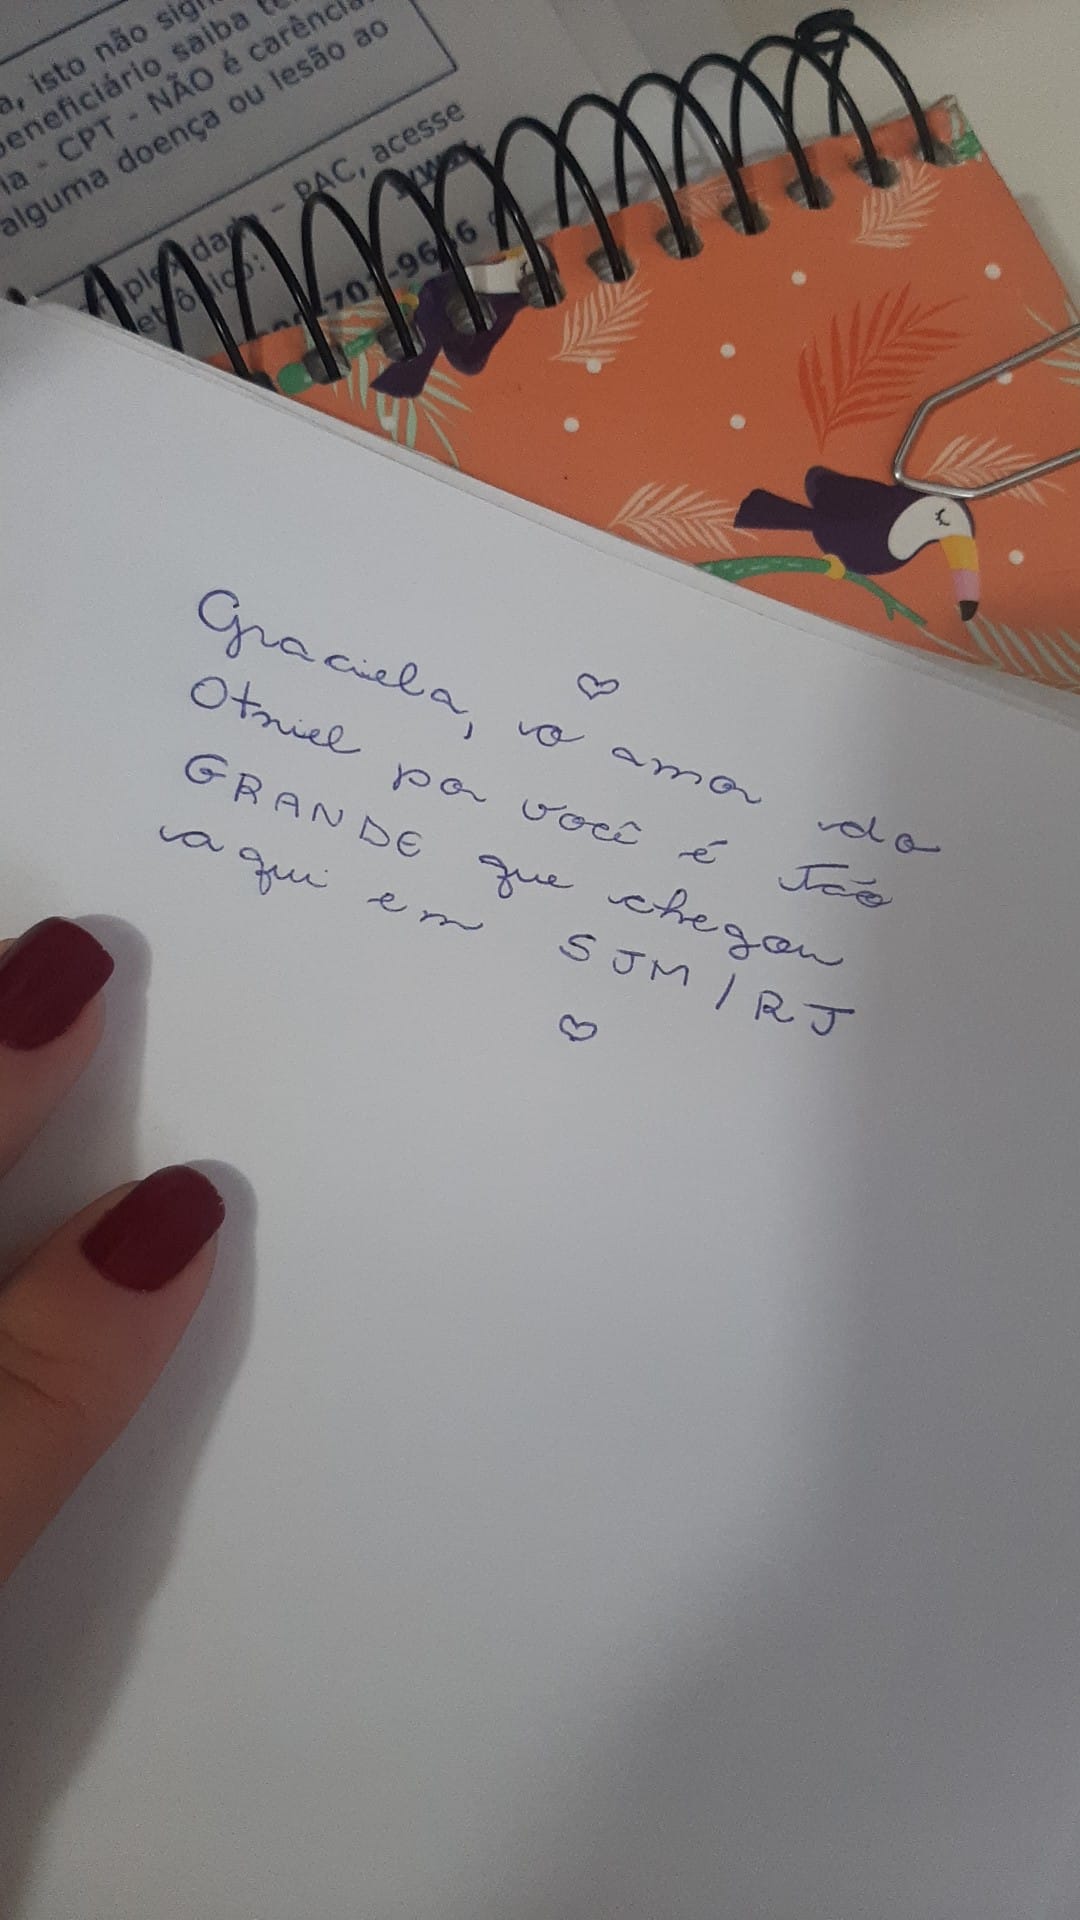 a, isto não sign
beneficiário saiba te
ia - CPT - NÃO é carência
alguma doença ou lesão ao
PAC, acesse
www.
Graciela, o amor do
Otniel por você é tão
GRANDE que chegou
aqui em SJM/RJ